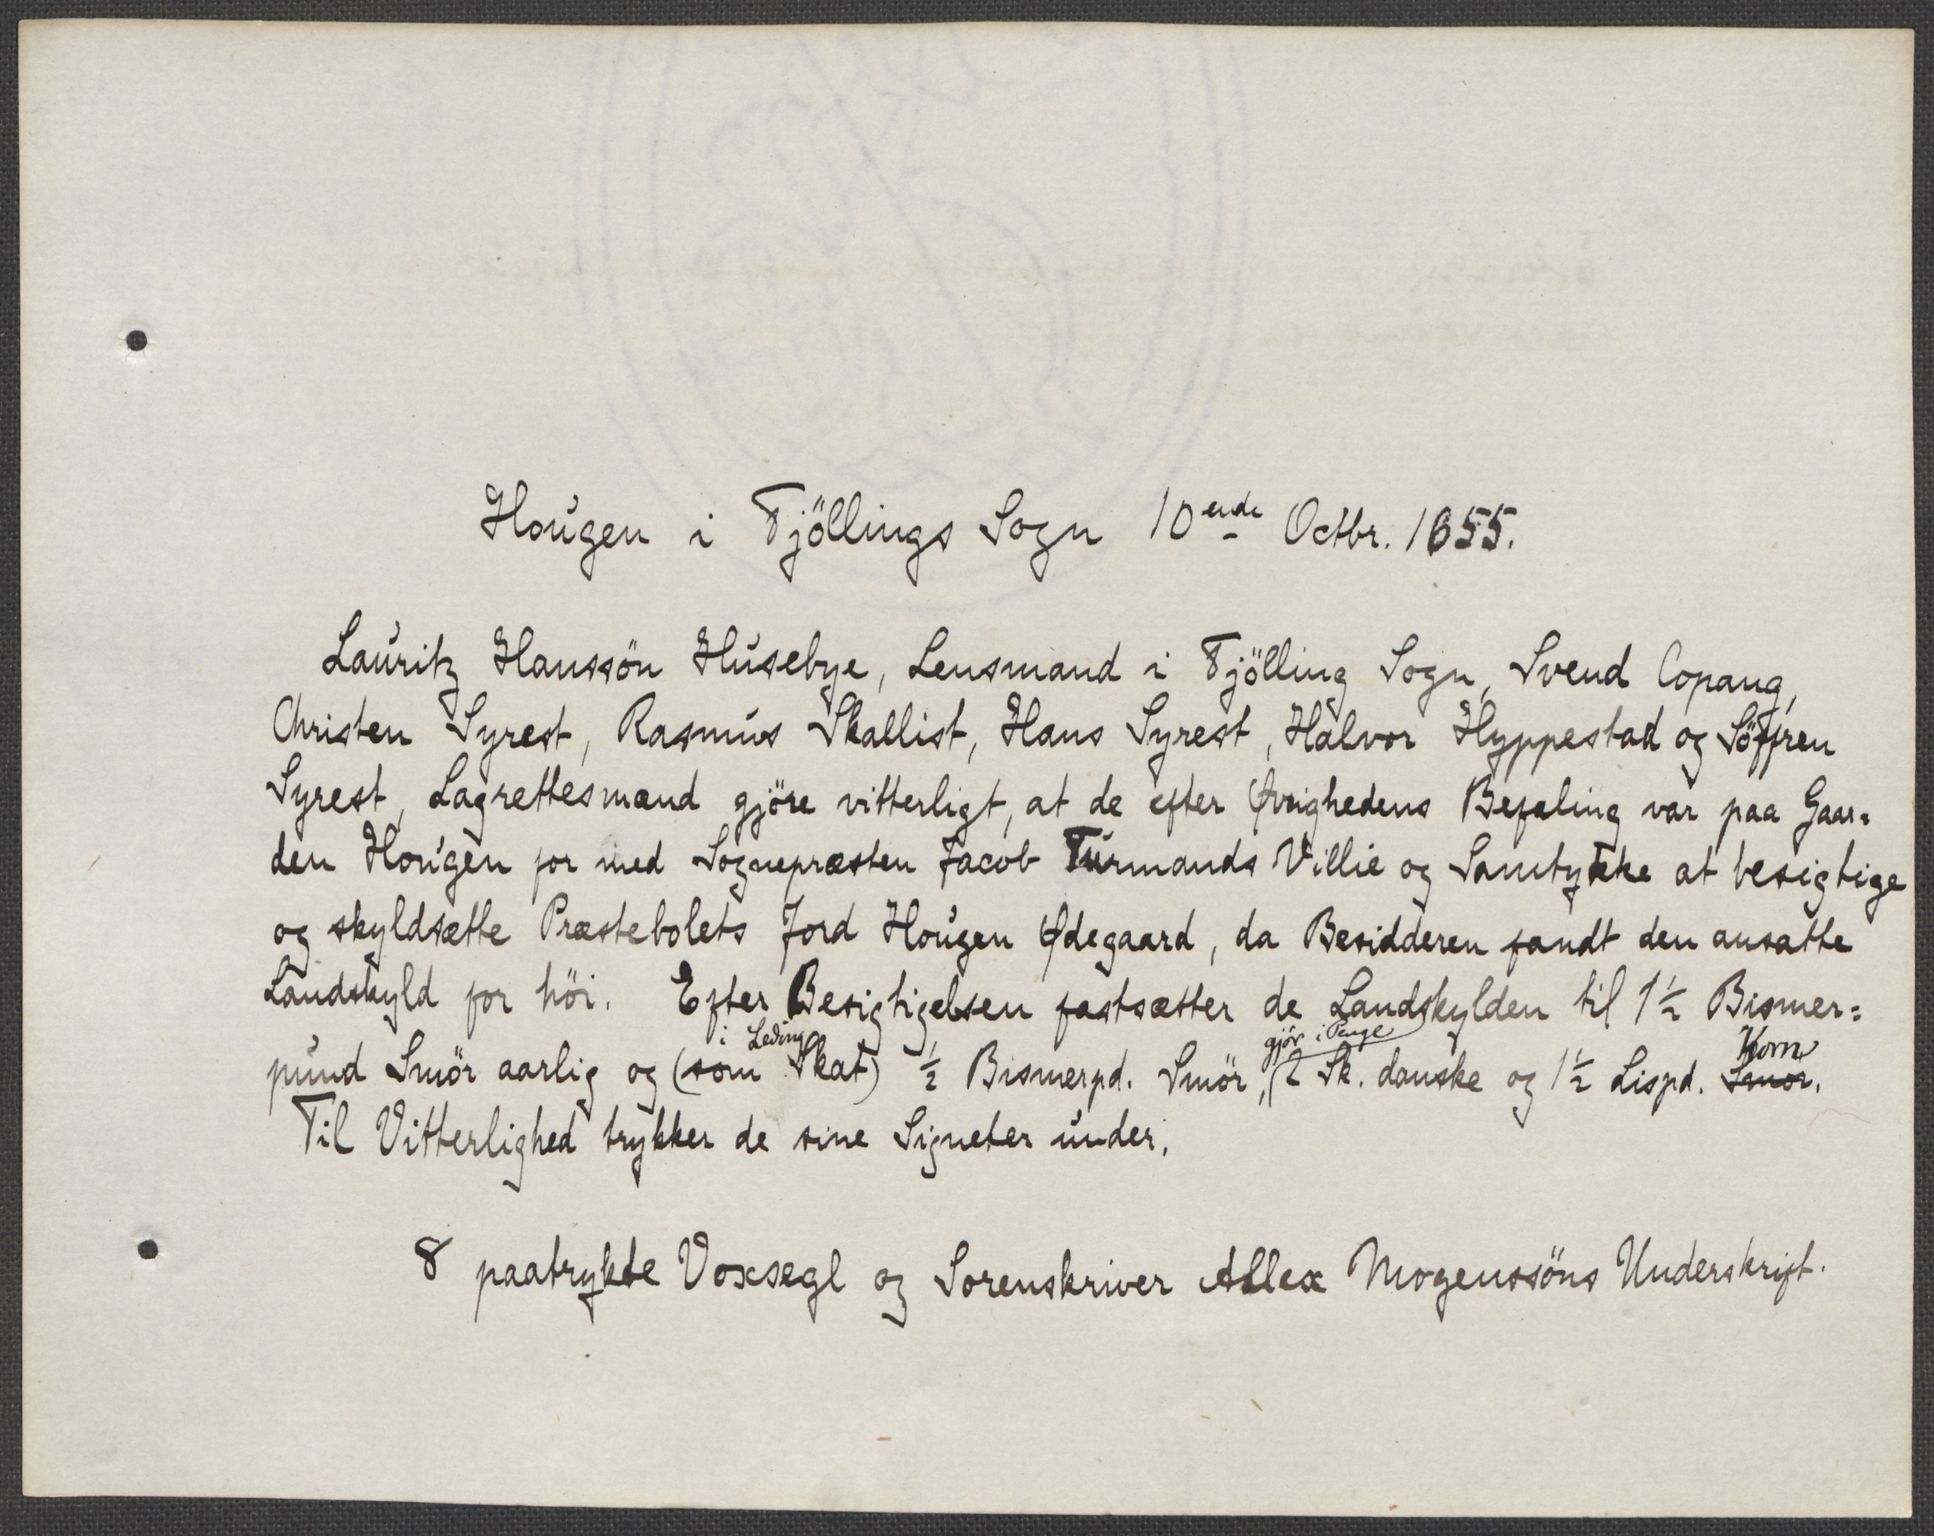 Hougen i Tjöllings Sogn 10ende Octbr. 1655.
Lauritz Hanssön Husebye, Lensmand i Tjölling Sogn, Svend Copang,
Christen Syrest, Rasmus Skallist, Hans Syrest, Halvor Hyppestad og Söffren
Syrest, Lagrettesmænd gjöre vitterligt, at de efter Øvrighedens Befaling var paa Gaar=
den Hougen for med Sognepræsten Jacob Turmands Villie og Samtykke at besigtige
og skyldsætte Præstebolets Jord Hougen Ødegaard, da Besidderen fandt den ansatte
Landskyld for höi. Efter Besigtigelsen fastsætter de Landskylden til 1½ Bismer=
i Leding gjör i Penge Korn
pund Smör aarlig og (som Skat) ½ Bismerpd. Smör, (2 Sk. danske og 1½ Lispd. Smör.
Til Vitterlighed trykker de sine Signeter under.
8 paatrykte Voxsegl og Sorenskriver Allex Mogenssöns Underskrift.